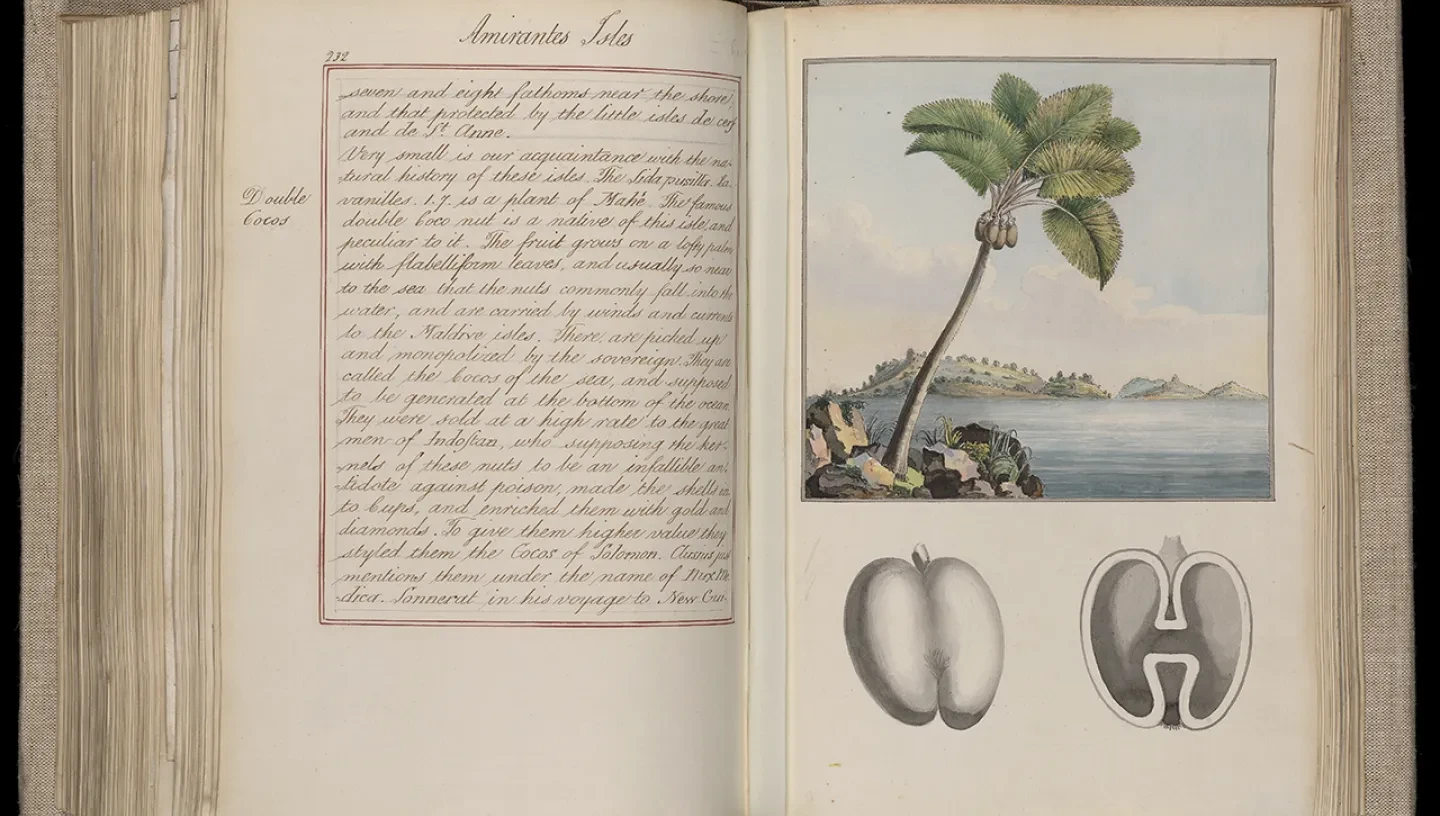 Amirantes Isles
232
seven and eight fathoms near the shore,
and that protected by the little isles de cerf
and de St. Anne.
Very small is our acquaintance with the na-
tural history of these isles. The Sida pusilla. Ca-
vanilles. 1.7. is a plant of Mahé. The famous
Double
Cocos
double Coco nut is a native of this isle, and
peculiar to it. The fruit grows on a lofty palm
with flabelliform leaves, and usually so near
to the sea that the nuts commonly fall into the
water, and are carried by winds and currents
to the Maldive isles. There are picked up
and monopolized by the sovereign. They are
called the Cocos of the sea, and supposed
to be generated at the bottom of the ocean.
They were sold at a high rate to the great
men of Indostan, who supposing the ker-
nels of these nuts to be an infallible an-
tidote against poison, made the shells in
to Cups, and enriched them with gold and
diamonds. To give them higher value they
styled them the Cocos of Solomon. Clusius just
mentions them under the name of Nux Me-
dica. Sonnerat in his voyage to New Gui-